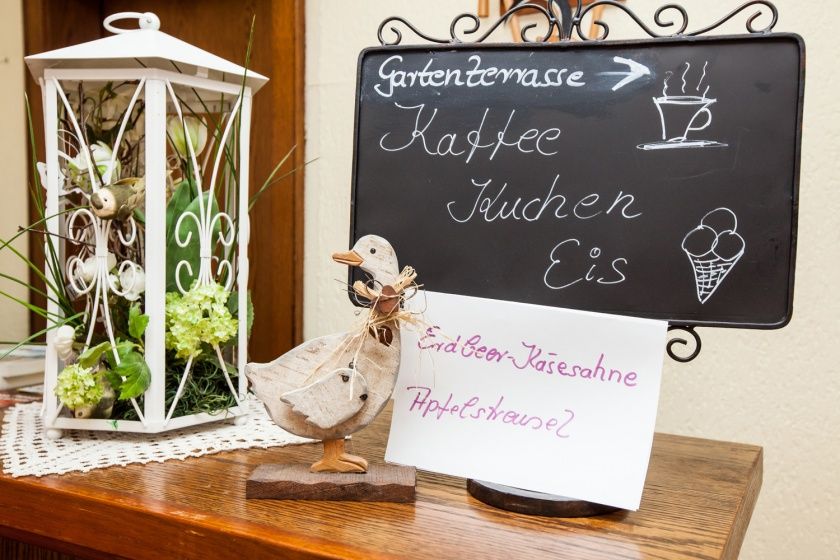 Gartenterrasse →
Kaffee
Kuchen
Eis
Erdbeer-Käsesahne
Apfelstreusel